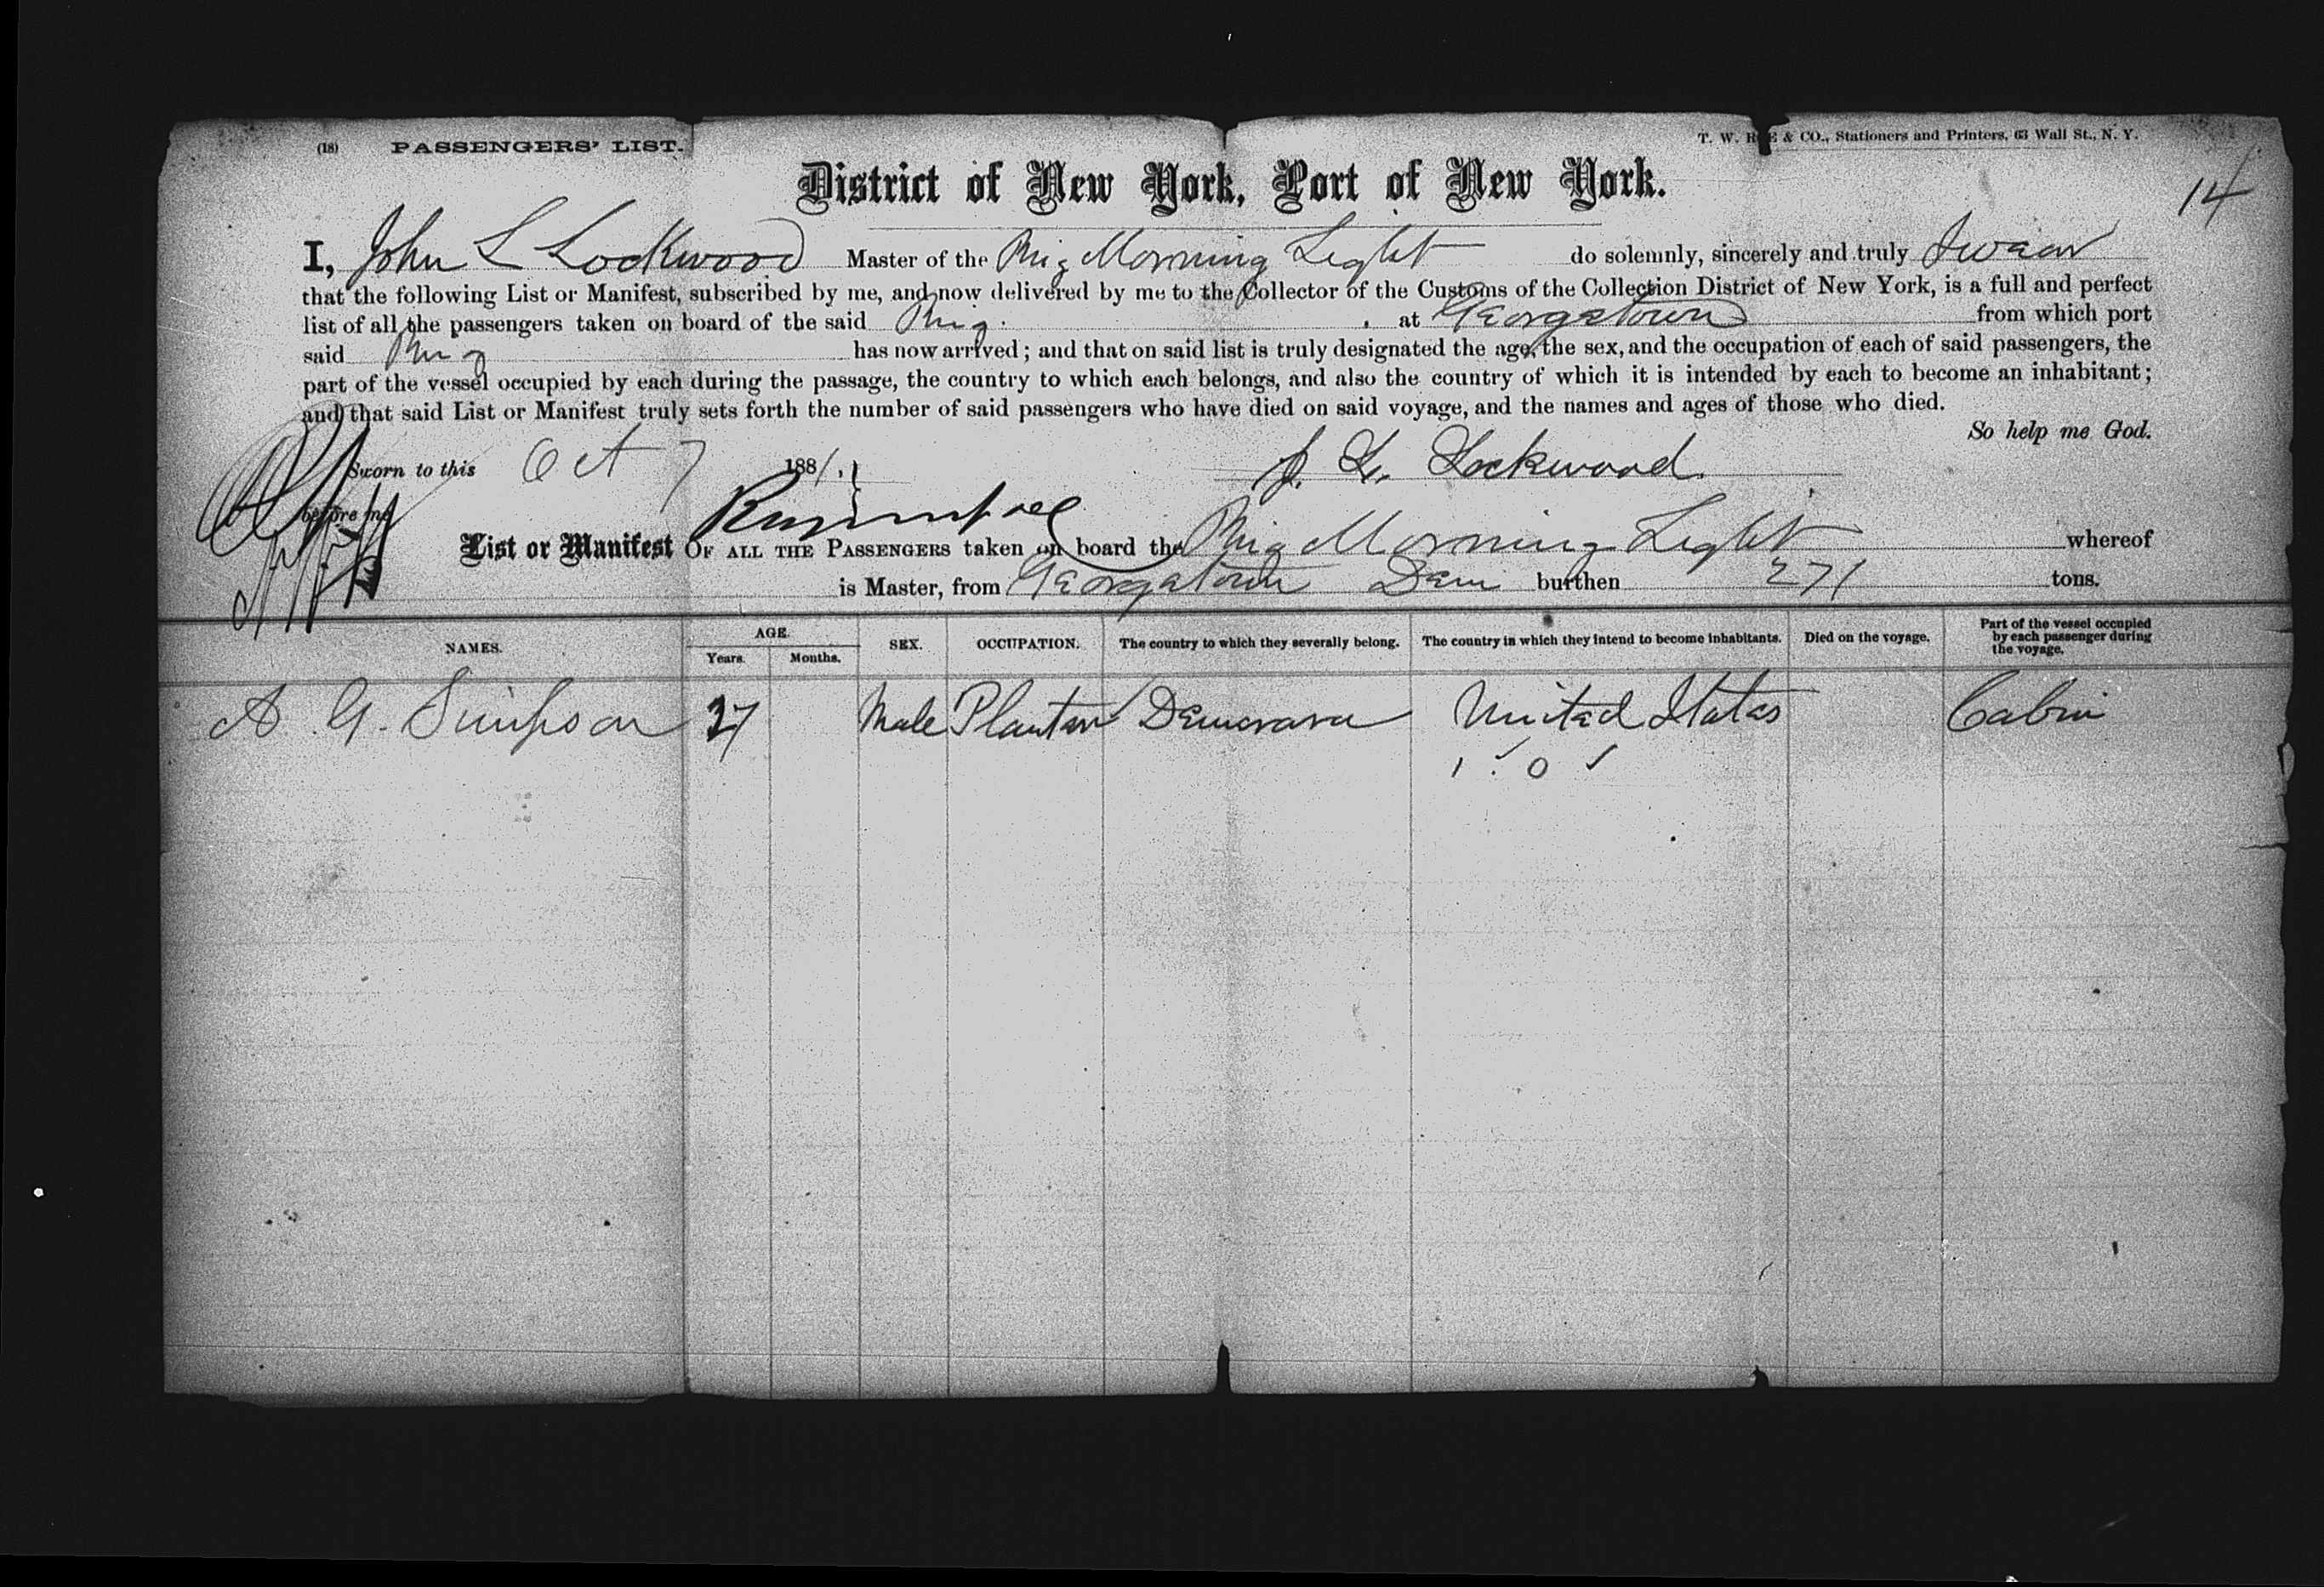 (18) PASSENGERS' LIST. T. W. & CO., Stationers and Printers, 63 Wall St., N. Y.
14
District of New York, Port of New York.
I, John L Lockwood Master of the Brig Morning Light do solemnly, sincerely and truly Swear
that the following List or Manifest, subscribed by me, and now delivered by me to the Collector of the Customs of the Collection District of New York, is a full and perfect
list of all the passengers taken on board of the said Brig. at Georgetown from which port
said Brig has now arrived; and that on said list is truly designated the age, the sex, and the occupation of each of said passengers, the
part of the vessel occupied by each during the passage, the country to which each belongs, and also the country of which it is intended by each to become an inhabitant;
and that said List or Manifest truly sets forth the number of said passengers who have died on said voyage, and the names and ages of those who died.
So help me God.
Sworn to this Oct 7 1881. J. L. Lockwood
before me
List or Manifest OF ALL THE PASSENGERS taken on board the Brig Morning Light whereof
is Master, from Georgetown Dem burthen 271 tons.
NAMES. AGE. Years. Months. SEX. OCCUPATION. The country to which they severally belong. The country in which they intend to become inhabitants. Died on the voyage. Part of the vessel occupied by each passenger during the voyage.
A. G. Simpson 37 Male Planter Demerara United States Cabin